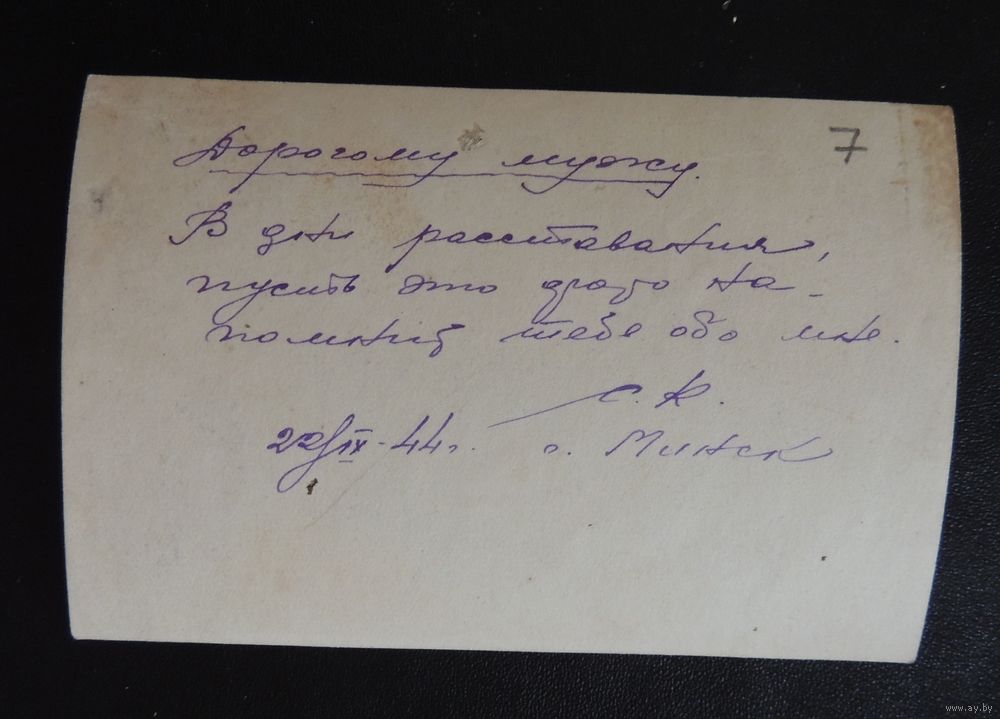 7
Дорогому мужу.
В дни расставания,
пусть это фото на-
помнит тебе обо мне.
С. К.
22/IX-44г. г. Минск
www.ay.by